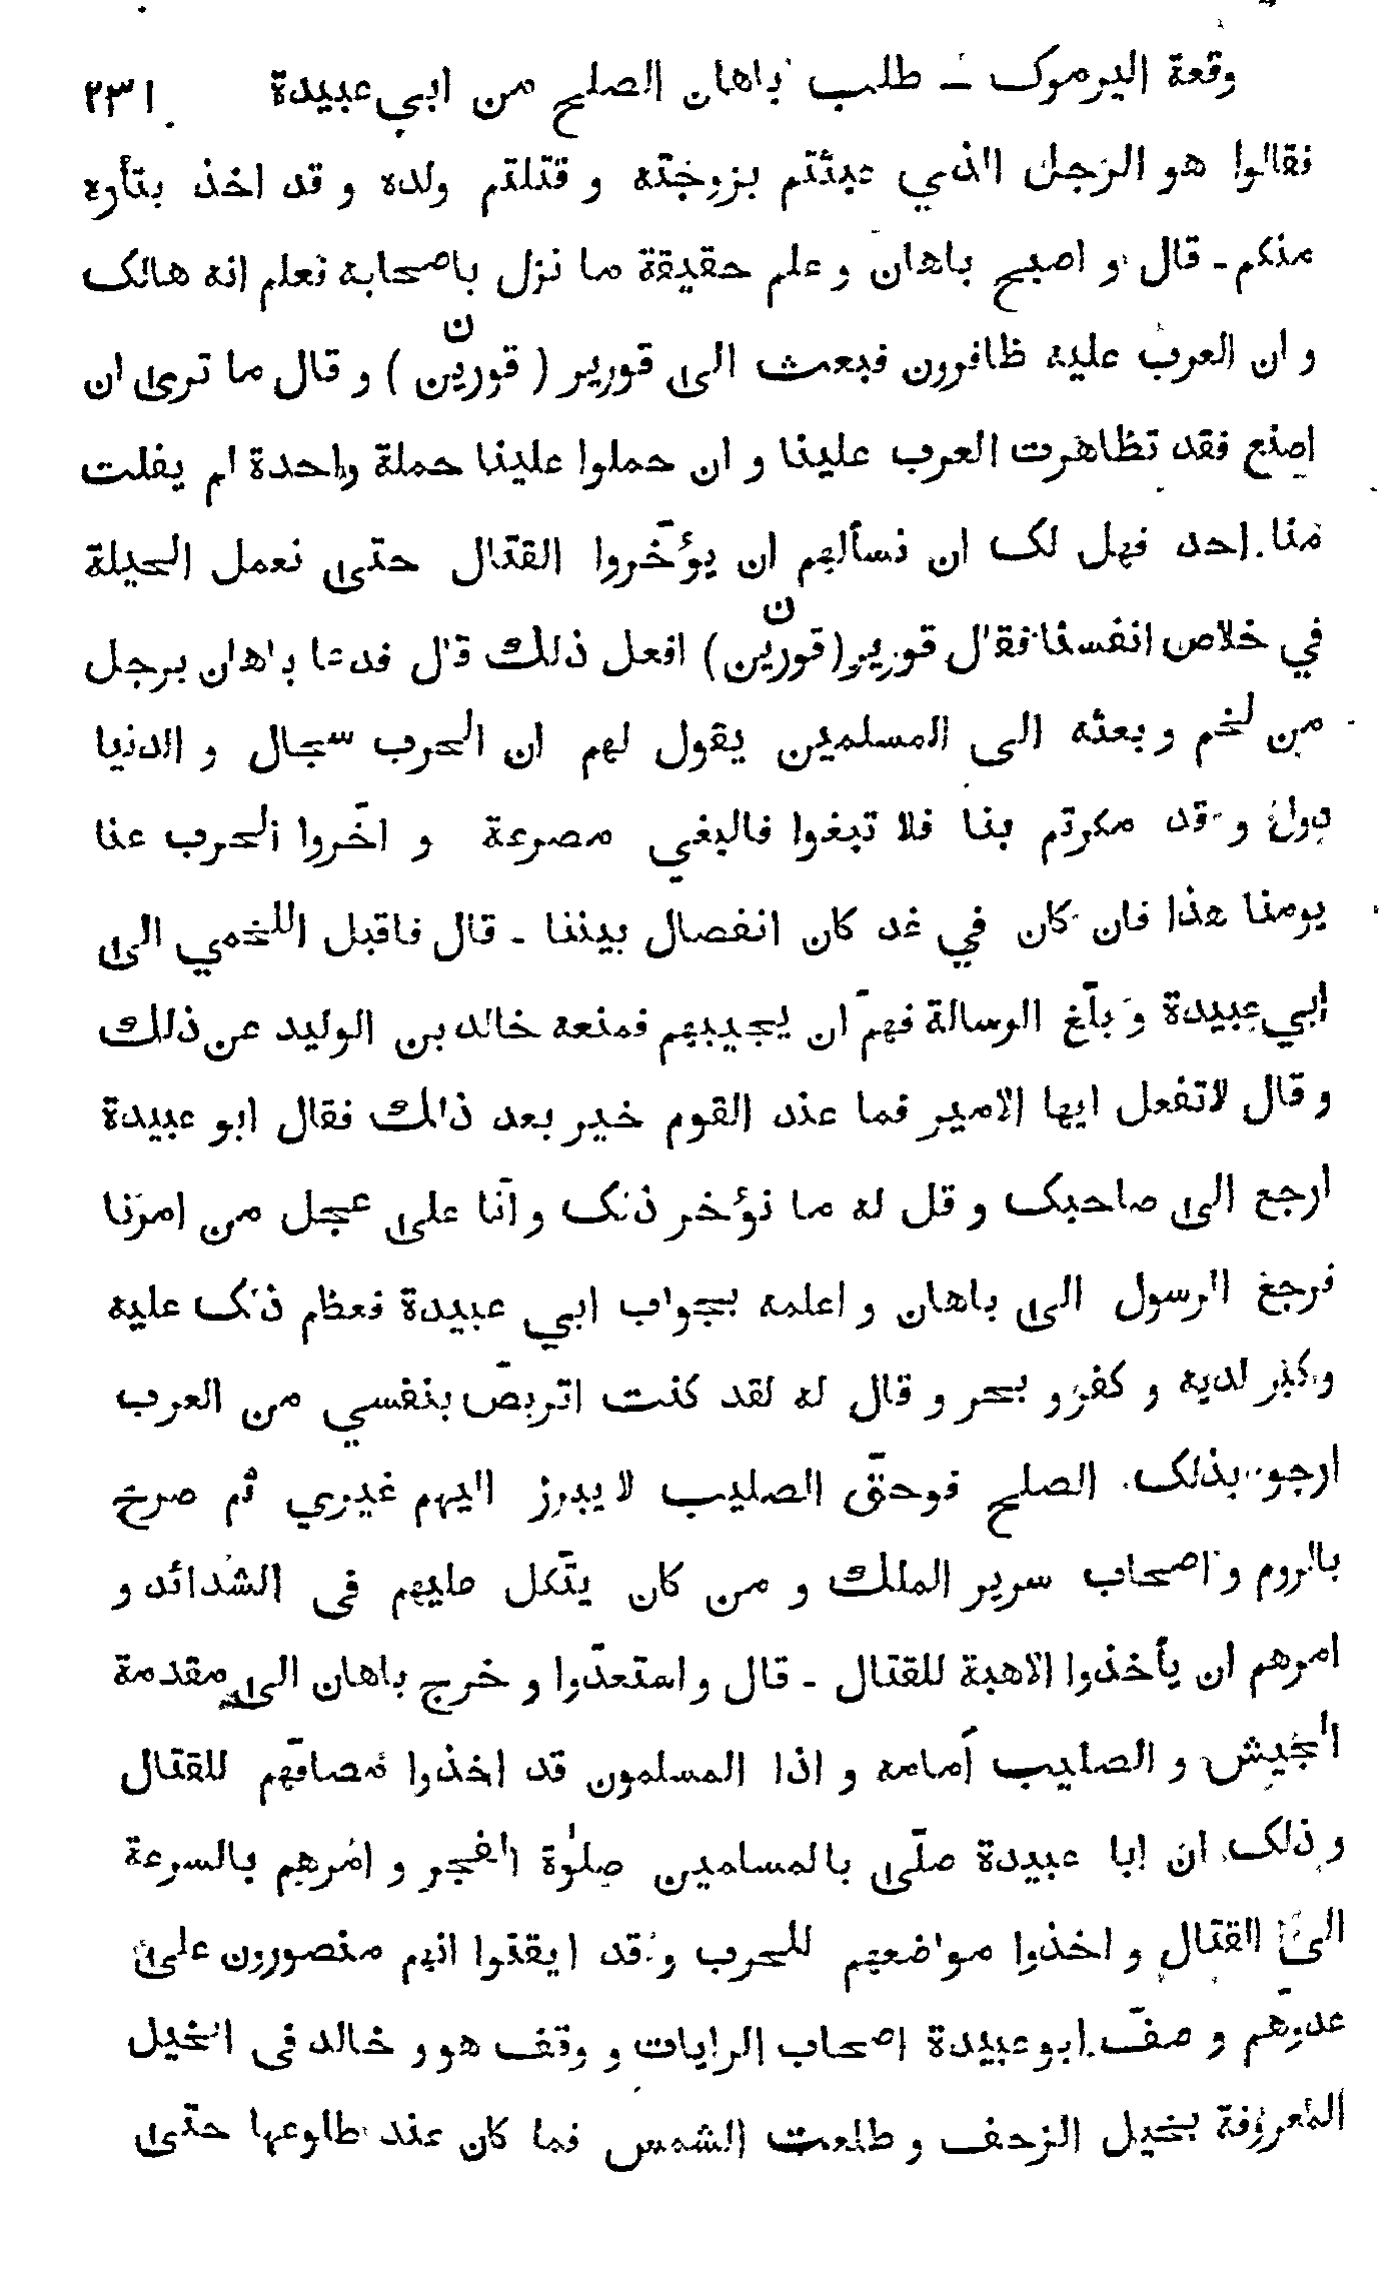 وقعة اليرموك ـ طلب باهان الصلح من ابي عبيدة ٢٣١
فقالوا هو الرجل الذي عبثتم بزوجته و قتلتم ولده و قد اخذ بثأره
منكم ـ قال و اصبح باهان و علم حقيقة ما نزل باصحابه فعلم انه هالك
و ان العرب عليه ظافرون فبعث الى قورير ( قورين ) و قال ما ترى ان
ن
اصنع فقد تظاهرت العرب علينا و ان حملوا علينا حملة واحدة لم يفلت
منا احد فهل لك ان نسألهم ان يؤخّروا القتال حتى نعمل الحيلة
في خلاص انفسنا فقال قورير (قورين) افعل ذلك قال فدعا باهان برجل
ن
من لخم و بعثه الى المسلمين يقول لهم ان الحرب سجال و الدنيا
دول و قد مكرتم بنا فلا تبغوا فالبغي مصرعة و اخّروا الحرب عنا
يومنا هذا فان كان في غد كان انفصال بيننا ـ قال فاقبل اللخمي الى
ابي عبيدة و بلّغ الرسالة فهمّ ان يجيبهم فمنعه خالد بن الوليد عن ذلك
و قال لاتفعل ايها الامير فما عند القوم خير بعد ذلك فقال ابو عبيدة
ارجع الى صاحبك و قل له ما نؤخر ذلك و انّا على عجل من امرنا
فرجع الرسول الى باهان و اعلمه بجواب ابي عبيدة فعظم ذلك عليه
و كبر لديه و كفر و بحر و قال له لقد كنت اتربّص بنفسي من العرب
ارجو بذلك الصلح فوحقّ الصليب لا يبرز اليهم غيري ثم صرخ
بالروم و اصحاب سرير الملك و من كان يتّكل عليهم فى الشدائد و
امرهم ان يأخذوا الاهبة للقتال ـ قال و استعدّوا و خرج باهان الى مقدمة
الجيش و الصليب أمامه و اذا المسلمون قد اخذوا مصافّهم للقتال
و ذلك ان ابا عبيدة صلّى بالمسلمين صلوٰة الفجر و امرهم بالسرعة
الى القتال و اخذوا مواضعهم للحرب و قد ايقنوا انهم منصورون على
عدوّهم و صفّ ابو عبيدة اصحاب الرايات و وقف هو و خالد فى الخيل
المعروفة بخيل الزحف و طلعت الشمس فما كان عند طلوعها حتّى